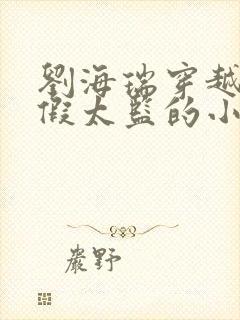 劉海瑞穿越
假太監的小
嚴野